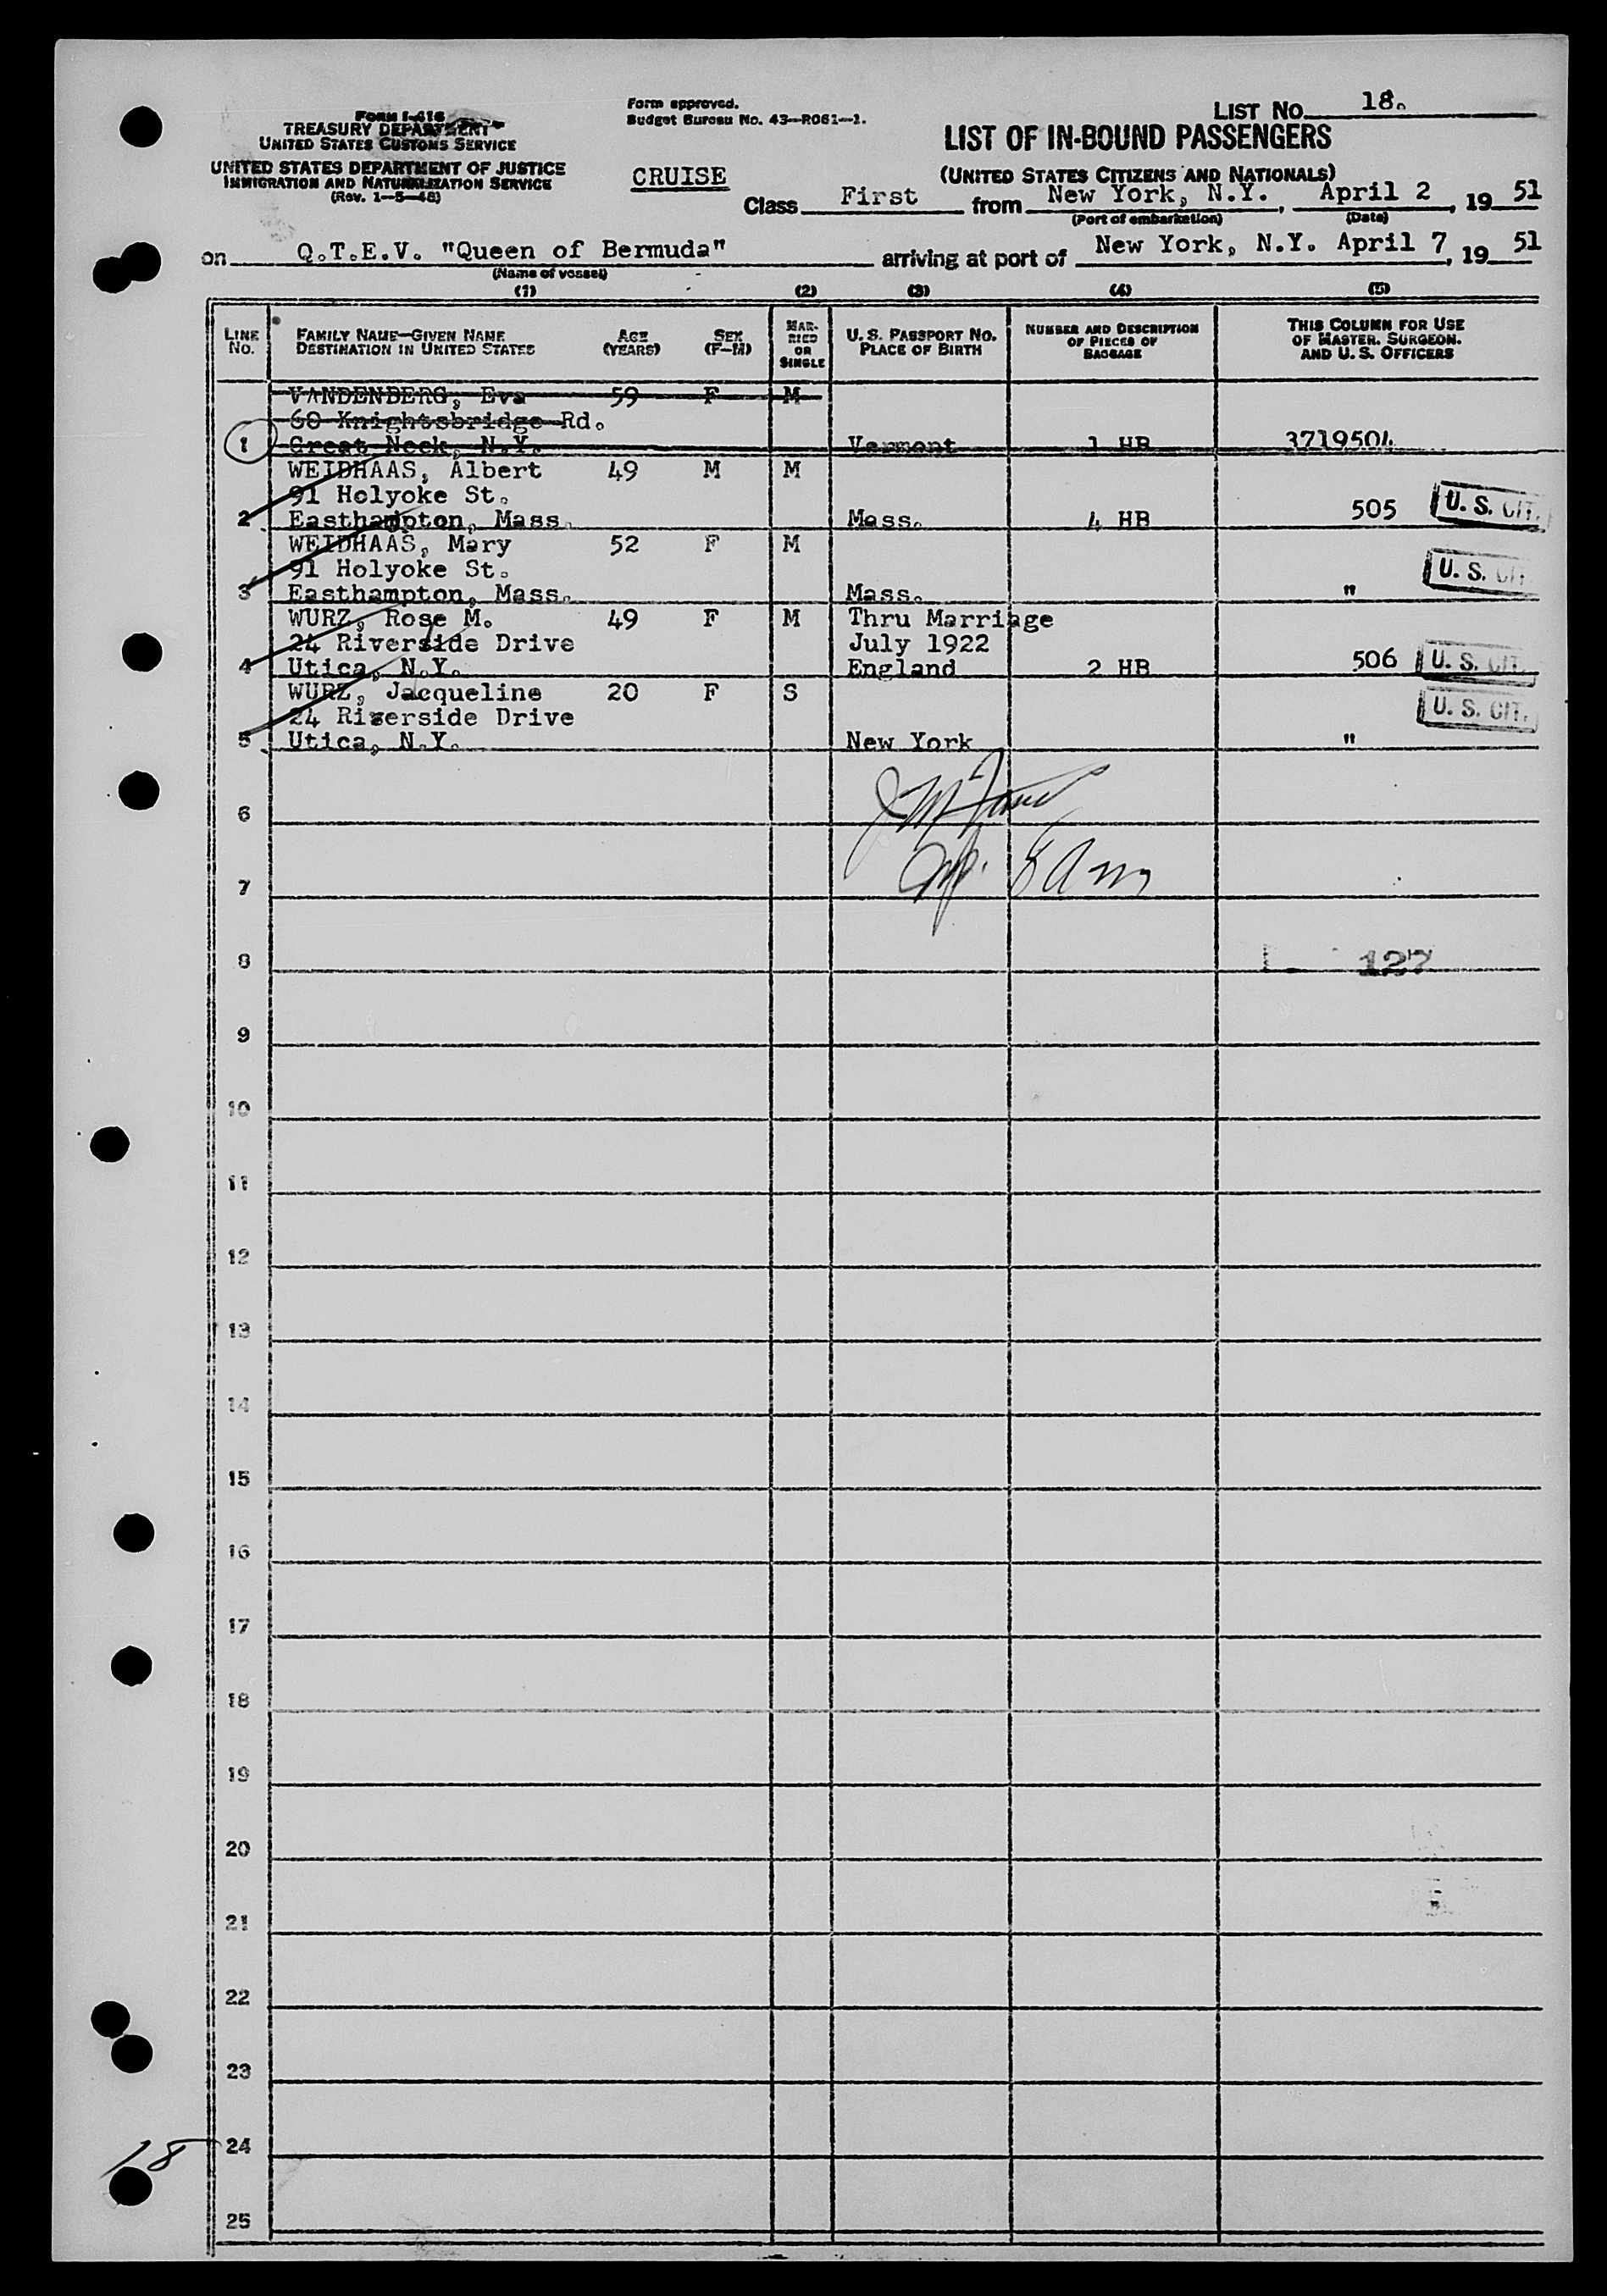 FORM I-416
TREASURY DEPARTMENT
UNITED STATES CUSTOMS SERVICE
UNITED STATES DEPARTMENT OF JUSTICE
IMMIGRATION AND NATURALIZATION SERVICE
(Rev. 1-5-48)
Form approved.
Budget Bureau No. 43-R061-1.
LIST NO. 18.
LIST OF IN-BOUND PASSENGERS
(UNITED STATES CITIZENS AND NATIONALS)
CRUISE
Class First from New York, N.Y., April 2, 1951
(Port of embarkation) (Date)
on Q.T.E.V. "Queen of Bermuda" arriving at port of New York, N.Y. April 7, 1951
(Name of vessel)
(1) (2) (3) (4) (5)
LINE NO.
FAMILY NAME—GIVEN NAME
DESTINATION IN UNITED STATES
AGE (YEARS)
SEX (F-M)
MARRIED OR SINGLE
U. S. PASSPORT NO.
PLACE OF BIRTH
NUMBER AND DESCRIPTION
OF PIECES OF
BAGGAGE
THIS COLUMN FOR USE
OF MASTER, SURGEON,
AND U. S. OFFICERS
VANDENBERG, Eva 59 F M
60 Knightsbridge Rd.
1 Great Neck, N.Y. Vermont 1 HB 3719504
WEIDHAAS, Albert 49 M M
91 Holyoke St.
2 Easthampton, Mass. Mass. 4 HB 505 U. S. CIT.
WEIDHAAS, Mary 52 F M
91 Holyoke St. U. S. CIT.
3 Easthampton, Mass. Mass. "
WURZ, Rose M. 49 F M Thru Marriage
24 Riverside Drive July 1922
4 Utica, N.Y. England 2 HB 506 U. S. CIT.
WURZ, Jacqueline 20 F S U. S. CIT.
24 Riverside Drive
5 Utica, N.Y. New York "
6
7
8 127
9
10
11
12
13
14
15
16
17
18
19
20
21
22
23
24
18
25